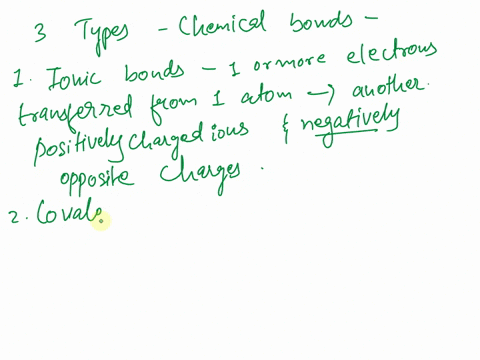 3 Types - Chemical bonds -
1. Ionic bonds - 1 or more electrons
transferred from 1 atom → another.
positively charged ions & negatively
opposite charges.
2. Covale